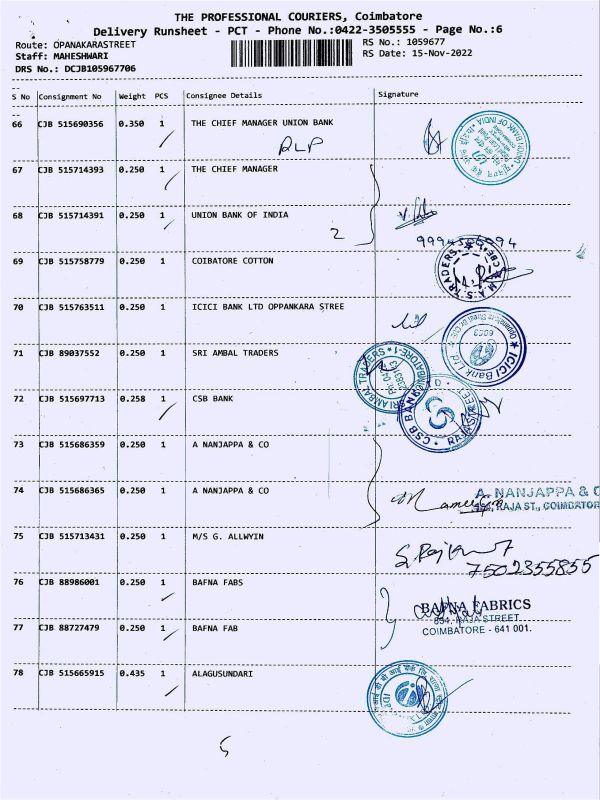 THE PROFESSIONAL COURIERS, Coimbatore
Delivery Runsheet - PCT - Phone No.:0422-3505555 - Page No.:6
Route: OPANAKARASTREET
RS No.: 1059677
Staff: MAHESHWARI
RS Date: 15-Nov-2022
DRS No.: DCJB105967706
S No Consignment No Weight PCS Consignee Details Signature
66 CJB 515690356 0.350 1 THE CHIEF MANAGER UNION BANK
RLP
67 CJB 515714393 0.250 1 THE CHIEF MANAGER
68 CJB 515714391 0.250 1 UNION BANK OF INDIA
2
69 CJB 515758779 0.250 1 COIBATORE COTTON
70 CJB 515763511 0.250 1 ICICI BANK LTD OPPANKARA STREE
ICICI Bank Ltd.
71 CJB 89037552 0.250 1 SRI AMBAL TRADERS
SRI AMBAL TRADERS
72 CJB 515697713 0.258 1 CSB BANK
CSB BANK
73 CJB 515686359 0.250 1 A NANJAPPA & CO
74 CJB 515686365 0.250 1 A NANJAPPA & CO
A. NANJAPPA & C
RAJA ST., COIMBATOR
75 CJB 515713431 0.250 1 M/S G. ALLWYIN
7502355855
76 CJB 88986001 0.250 1 BAFNA FABS
BAFNA FABRICS
RAJA STREET
COIMBATORE - 641 001.
77 CJB 88727479 0.250 1 BAFNA FAB
78 CJB 515665915 0.435 1 ALAGUSUNDARI
5